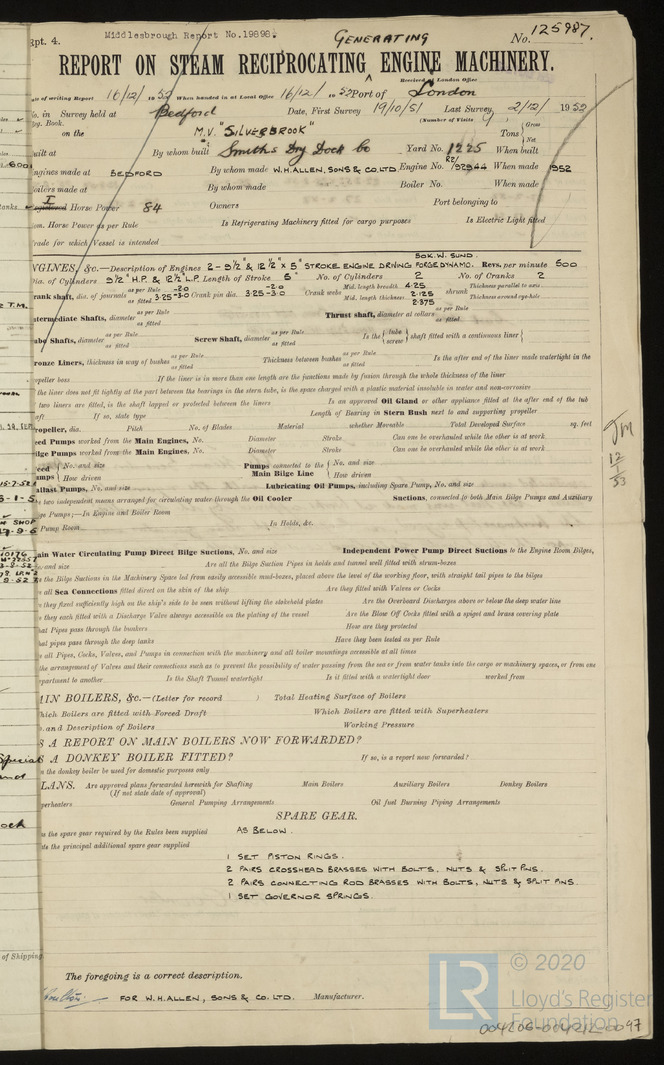 Rpt. 4.
Middlesbrough Report No.19898.
GENERATING
No. 125987.
REPORT ON STEAM RECIPROCATING ENGINE MACHINERY.
Received at London Office
of writing Report 16/12/1952 When handed in at Local Office 16/12/1952 Port of London
No. in Survey held at Bedford Date, First Survey 19/10/51 Last Survey 2/12/1952
Reg. Book. (Number of Visits 9)
on the M.V. "SILVERBROOK" Tons { Gross Net
Built at By whom built Smiths Dry Dock Co Yard No. 1225 When built
Engines made at BEDFORD By whom made W.H.ALLEN, SONS & CO. LTD Engine No. R2/92944 When made 1952
Boilers made at By whom made Boiler No. When made
Registered Horse Power 84 Owners Port belonging to
Nom. Horse Power as per Rule Is Refrigerating Machinery fitted for cargo purposes Is Electric Light fitted
Trade for which Vessel is intended
ENGINES, &c.—Description of Engines 2 - 9½" & 12½" x 5" STROKE ENGINE DRIVING 50K.W. 5UND. FORGE DYNAMO. Revs. per minute 600
Dia. of Cylinders 9½" H.P. & 12½" L.P. Length of Stroke 5" No. of Cylinders 2 No. of Cranks 2
Crank shaft, dia. of journals as per Rule as fitted 3·25-3·0 Crank pin dia. 3·25-3·0 Crank webs Mid. length breadth 4·25 Mid. length thickness 2·125 2·375 shrunk Thickness parallel to axis Thickness around eye-hole
Intermediate Shafts, diameter as per Rule as fitted Thrust shaft, diameter at collars as per Rule as fitted
Tube Shafts, diameter as per Rule as fitted Screw Shaft, diameter as per Rule as fitted Is the { tube screw } shaft fitted with a continuous liner {
Bronze Liners, thickness in way of bushes as per Rule as fitted Thickness between bushes as per Rule as fitted Is the after end of the liner made watertight in the
propeller boss If the liner is in more than one length are the junctions made by fusion through the whole thickness of the liner
the liner does not fit tightly at the part between the bearings in the stern tube, is the space charged with a plastic material insoluble in water and non-corrosive
two liners are fitted, is the shaft lapped or protected between the liners Is an approved Oil Gland or other appliance fitted at the after end of the tub
If so, state type Length of Bearing in Stern Bush next to and supporting propeller
Propeller, dia. Pitch No. of Blades Material whether Moveable Total Developed Surface sq. feet
Feed Pumps worked from the Main Engines, No. Diameter Stroke Can one be overhauled while the other is at work
Bilge Pumps worked from the Main Engines, No. Diameter Stroke Can one be overhauled while the other is at work
Feed Pumps { No. and size How driven Pumps connected to the Main Bilge Line { No. and size How driven
Ballast Pumps, No. and size Lubricating Oil Pumps, including Spare Pump, No. and size
two independent means arranged for circulating water through the Oil Cooler Suctions, connected to both Main Bilge Pumps and Auxiliary
Pumps;—In Engine and Boiler Room
Pump Room In Holds, &c.
Main Water Circulating Pump Direct Bilge Suctions, No. and size Independent Power Pump Direct Suctions to the Engine Room Bilges,
and size Are all the Bilge Suction Pipes in holds and tunnel well fitted with strum-boxes
the Bilge Suctions in the Machinery Space led from easily accessible mud-boxes, placed above the level of the working floor, with straight tail pipes to the bilges
all Sea Connections fitted direct on the skin of the ship Are they fitted with Valves or Cocks
they fixed sufficiently high on the ship's side to be seen without lifting the stokehold plates Are the Overboard Discharges above or below the deep water line
they each fitted with a Discharge Valve always accessible on the plating of the vessel Are the Blow Off Cocks fitted with a spigot and brass covering plate
What Pipes pass through the bunkers How are they protected
What pipes pass through the deep tanks Have they been tested as per Rule
all Pipes, Cocks, Valves, and Pumps in connection with the machinery and all boiler mountings accessible at all times
the arrangement of Valves and their connections such as to prevent the possibility of water passing from the sea or from water tanks into the cargo or machinery spaces, or from one
compartment to another Is the Shaft Tunnel watertight Is it fitted with a watertight door worked from
MAIN BOILERS, &c.—(Letter for record ) Total Heating Surface of Boilers
Which Boilers are fitted with Forced Draft Which Boilers are fitted with Superheaters
and Description of Boilers Working Pressure
IS A REPORT ON MAIN BOILERS NOW FORWARDED?
IS A DONKEY BOILER FITTED? If so, is a report now forwarded?
the donkey boiler be used for domestic purposes only
PLANS. Are approved plans forwarded herewith for Shafting Main Boilers Auxiliary Boilers Donkey Boilers
(If not state date of approval)
Superheaters General Pumping Arrangements Oil fuel Burning Piping Arrangements
SPARE GEAR.
the spare gear required by the Rules been supplied AS BELOW.
the principal additional spare gear supplied
1 SET PISTON RINGS.
2 PAIRS CROSSHEAD BRASSES WITH BOLTS, NUTS & SPLIT PINS.
2 PAIRS CONNECTING ROD BRASSES WITH BOLTS, NUTS & SPLIT PINS.
1 SET GOVERNOR SPRINGS.
of Shipping
The foregoing is a correct description.
FOR W.H.ALLEN, SONS & CO. LTD. Manufacturer.
JM
12/1/53
LR
© 2020
Lloyd's Register
Foundation
004206-004212-0097